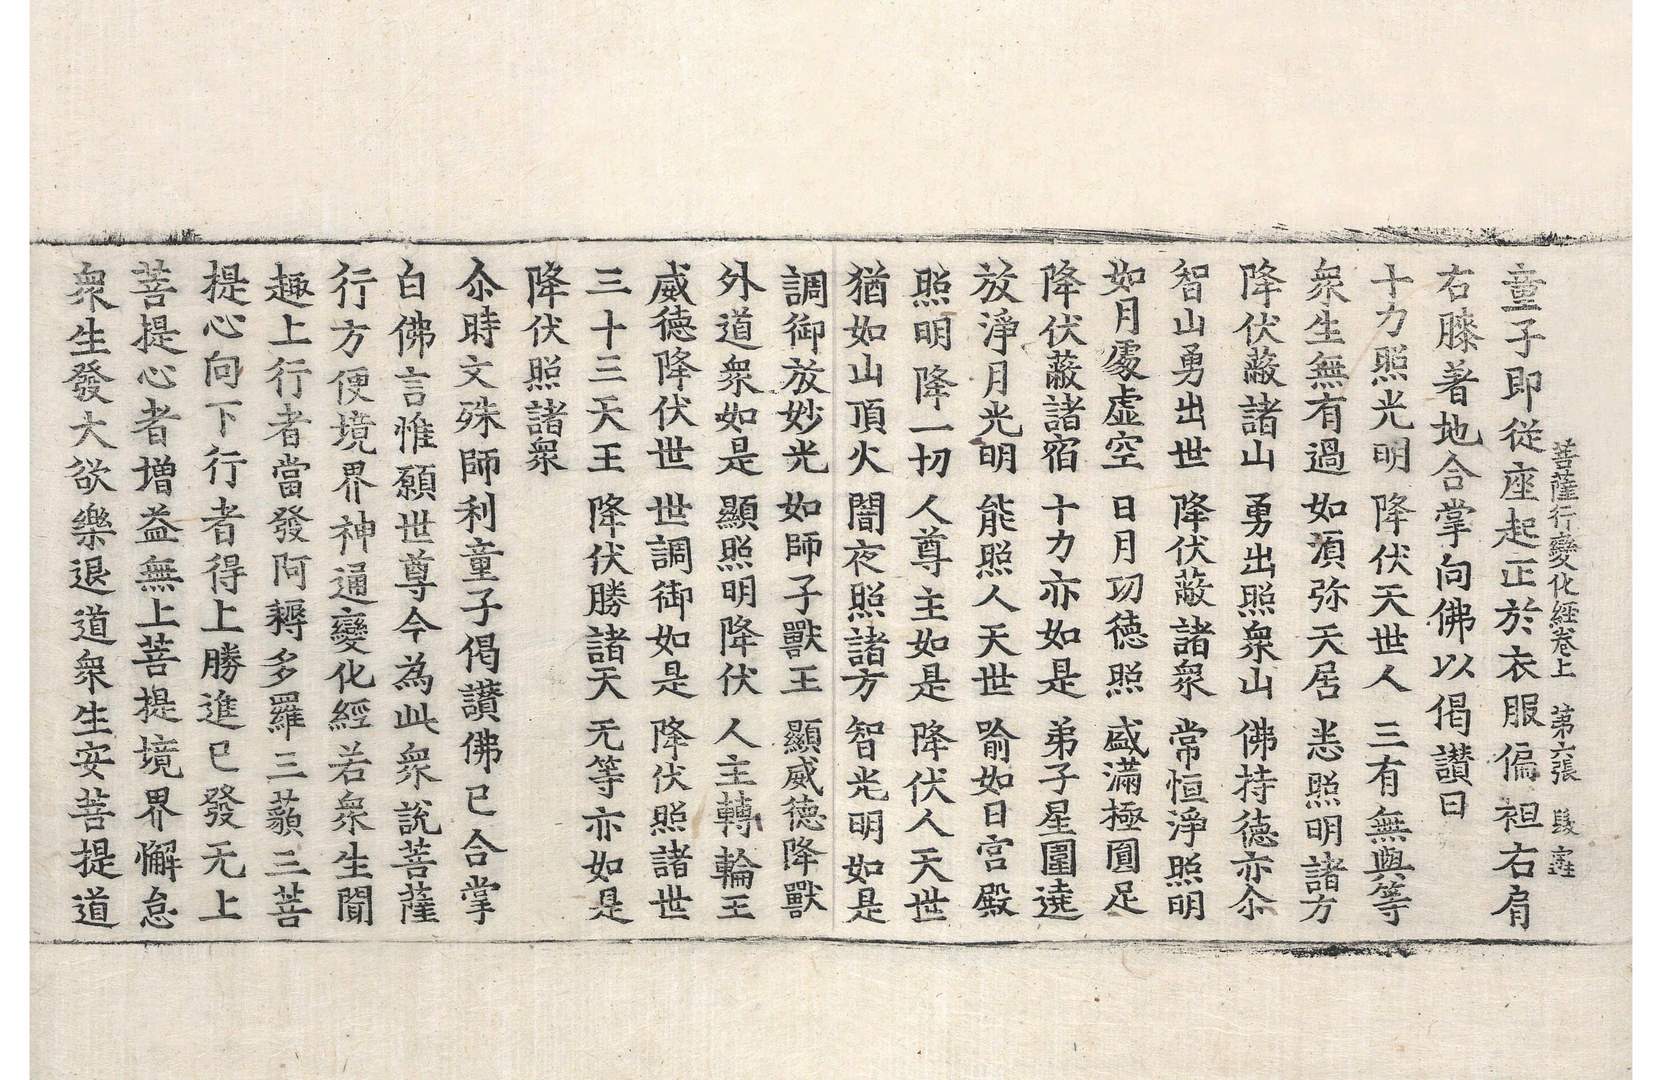 菩薩行變化經卷上 第六張 𮪍
童子即從座起正於衣服偏袒右肩
右膝著地合掌向佛以偈讃曰
十力照光明 降伏天世人 三有無與等
衆生無有過 如湏弥天居 悉照明諸方
降伏蔽諸山 勇出照衆山 佛持德亦尒
智山勇出世 降伏蔽諸衆 常恒淨照明
如月處虛空 日月功德照 盛滿極圓足
降伏蔽諸宿 十力亦如是 弟子星圍遶
放淨月光明 能照人天世 喻如日宮殿
照明降一切 人尊主如是 降伏人天世
猶如山頂火 闇夜照諸方 智光明如是
調御放妙光 如師子獸王 顯威德降獸
外道衆如是 顯照明降伏 人主轉輪王
威德降伏世 世調御如是 降伏照諸世
三十三天王 降伏勝諸天 无等亦如是
降伏照諸衆
尒時文殊師利童子偈讃佛已合掌
白佛言惟願世尊今為此衆說菩薩
行方便境界神通變化經若衆生聞
趣上行者當發阿耨多羅三藐三菩
提心向下行者得上勝進已發无上
菩提心者增益無上菩提境界懈怠
衆生發大欲樂退道衆生安菩提道